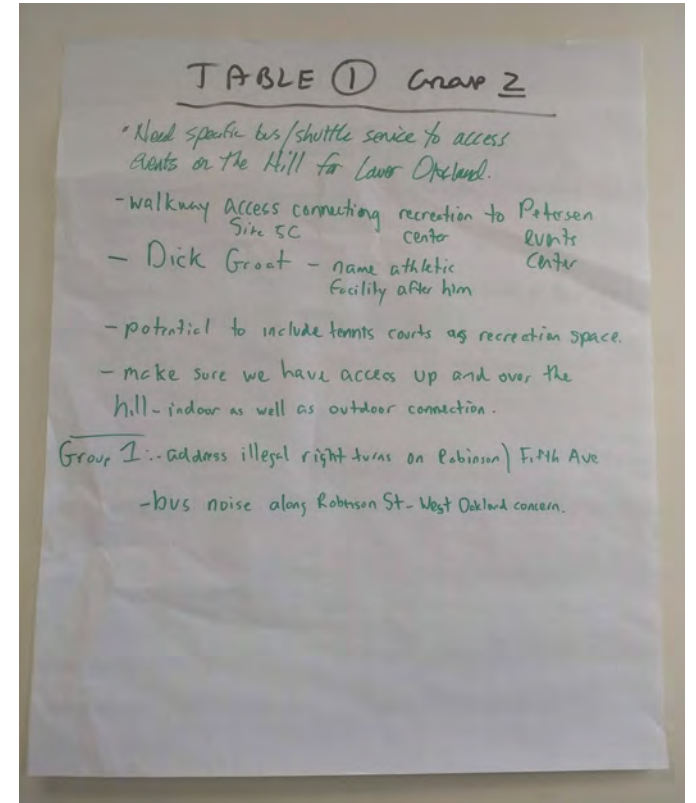 TABLE ① Group 2
• Need specific bus/shuttle service to access
events on the Hill for Lower Oakland.
- walkway access connecting recreation to Petersen
Site 5C center events
- Dick Groat - name athletic center
facility after him
- potential to include tennis courts as recreation space.
- make sure we have access up and over the
hill - indoor as well as outdoor connection.
Group 1: - address illegal right turns on Robinson) Fifth Ave
- bus noise along Robinson St - West Oakland concern.